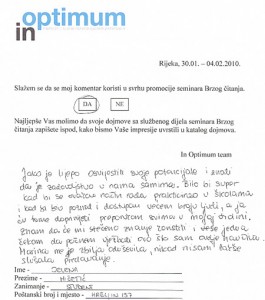 in optimum
Rijeka, 30.01. – 04.02.2010.
Slažem se da se moj komentar koristi u svrhu promocije seminara Brzog čitanja.
DA NE
Najljepše Vas molimo da svoje dojmove sa službenog dijela seminara Brzog čitanja
zapišete ispod, kako bismo Vaše impresije uvrstili u katalog dojmova.
In Optimum team
Jako je lijepo osvijestiti svoje potencijale i znati
da je zadovoljstvo u nama samima. Bilo bi super
kad bi se ovakav način rada prakticirao u školama
kad bi bio poznat i dostupan većem broju ljudi, a ja
ću toplo preporučiti svima u mojoj okolini.
Znam da će mi stečeno znanje koristiti i
želim da počnem vježbati ovo što sam ovdje naučila.
Marina me je obilja oduševila, nikad nisam
slušala predavanje.
Ime – JELENA
Prezime –
Zanimanje – STUDENT
Poštanski broj i mjesto – 157